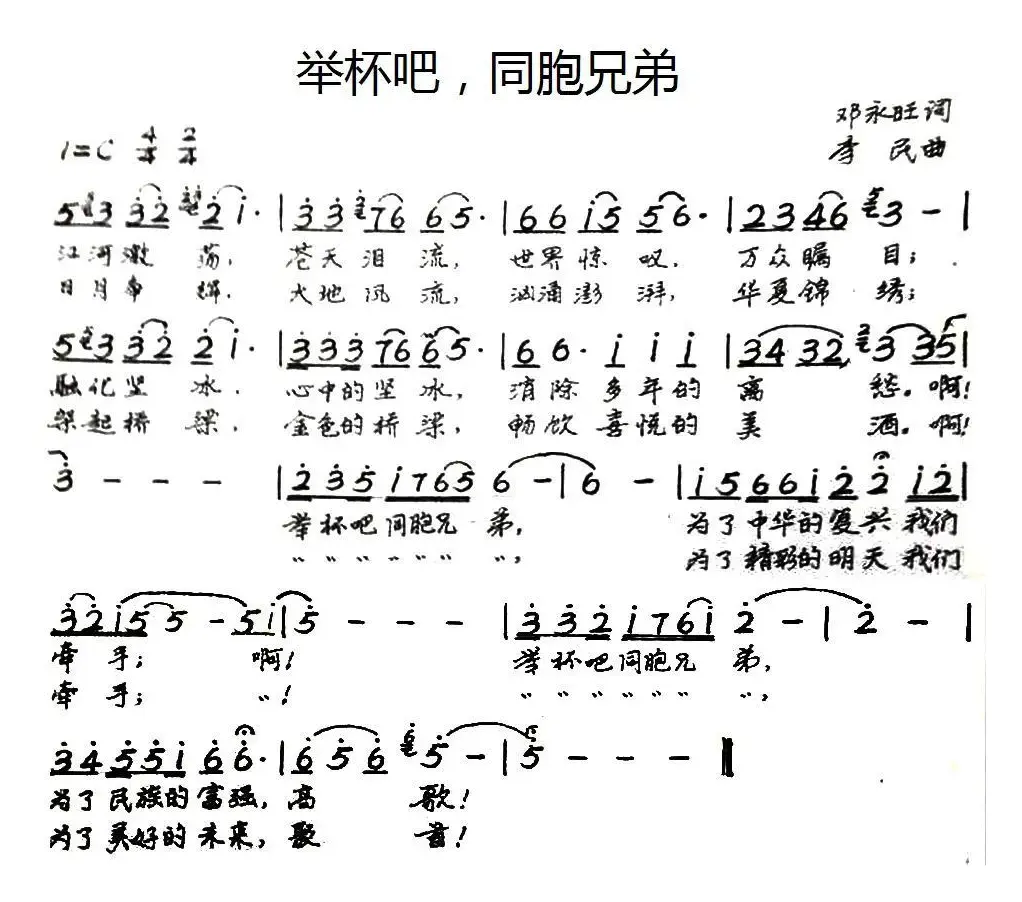 举杯吧，同胞兄弟
邓永旺词
1=C 4/4 2/4
李 民曲
5 3 3 2 2 i· | 3 3 7 6 6 5· | 6 6 i 5 5 6· | 2 3 4 6 3 - |
江河激 荡， 苍天泪 流， 世界惊 叹， 万众瞩 目；
日月争 辉， 大地风 流， 汹涌澎 湃， 华夏锦 绣；
5 3 3 2 2 i· | 3 3 3 7 6 6 5· | 6 6· i i i | 3 4 3 2, 3 3 5 |
融化坚 冰， 心中的坚 冰， 消除多年的 离 愁。啊！
架起桥 梁， 金色的桥 梁， 畅饮喜悦的 美 酒。啊！
3 - - - | 2 3 5 i 7 6 5 6 - | 6 - | i 5 6 6 i 2 2 i 2 |
举杯吧同胞兄 弟， 为了中华的复兴我们
〃 〃 〃 〃 〃 〃 〃， 为了精彩的明天我们
3 2 i 5 5 - 5 i | 5 - - - | 3 3 2 i 7 6 i 2 - | 2 - |
牵 手； 啊！ 举杯吧同胞兄 弟，
牵 手； 〃！ 〃 〃 〃 〃 〃 〃 〃，
3 4 5 5 i 6 6· | 6 5 6 6 5 - | 5 - - - ‖
为了民族的富强，高 歌！
为了美好的未来，聚 首！